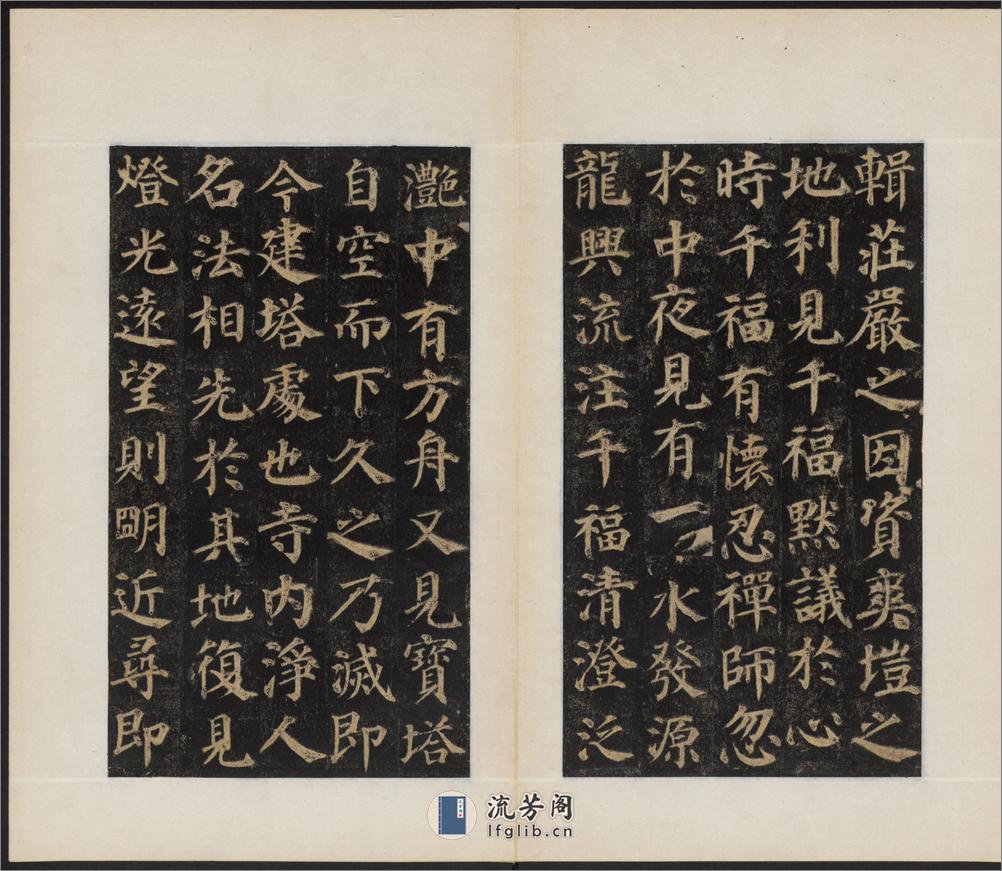 輯莊嚴之因資爽塏之
地利見千福默議於心
時千福有懷忍禪師忽
於中夜見有一水發源
龍興流注千福清澄泛
灧中有方舟又見寶塔
自空而下久之乃滅即
今建塔處也寺內淨人
名法相先於其地復見
燈光遠望則明近尋即
流芳阁
lfglib.cn